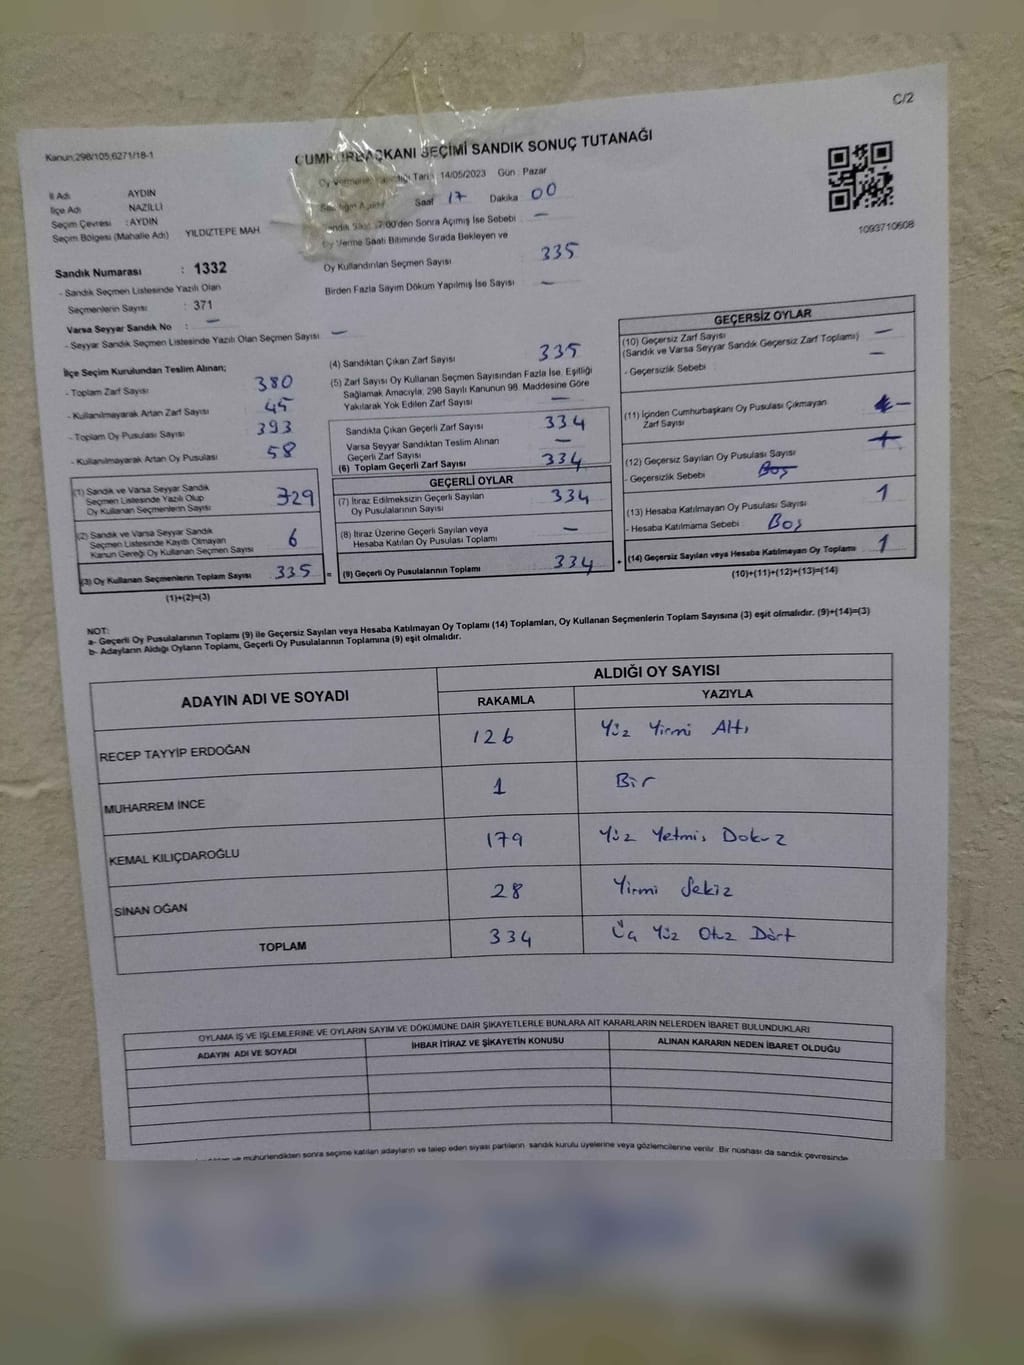 C/2
Kanun;298/105,6271/18-1
CUMHURBAŞKANI SEÇİMİ SANDIK SONUÇ TUTANAĞI
14/05/2023 Gün : Pazar
İl Adı : AYDIN
İlçe Adı : NAZİLLİ
Seçim Çevresi : AYDIN
Seçim Bölgesi (Mahalle Adı) YILDIZTEPE MAH
Saat 17 Dakika 00
:00'den Sonra Açımış İse Sebebi –
Oy Verme Saati Bitiminde Sırada Bekleyen ve
Oy Kullandırılan Seçmen Sayısı : 335
Birden Fazla Sayım Döküm Yapılmış İse Sayısı : –
1093710608
Sandık Numarası : 1332
- Sandık Seçmen Listesinde Yazılı Olan
Seçmenlerin Sayısı : 371
Varsa Seyyar Sandık No : –
- Seyyar Sandık Seçmen Listesinde Yazılı Olan Seçmen Sayısı : –
İlçe Seçim Kurulundan Teslim Alınan;
- Toplam Zarf Sayısı 380
- Kullanılmayarak Artan Zarf Sayısı 45
- Toplam Oy Pusulası Sayısı 393
- Kullanılmayarak Artan Oy Pusulası 58
(1) Sandık ve Varsa Seyyar Sandık
Seçmen Listesinde Yazılı Olup
Oy Kullanan Seçmenlerin Sayısı 329
(2) Sandık ve Varsa Seyyar Sandık
Seçmen Listesinde Kayıtlı Olmayan
Kanun Gereği Oy Kullanan Seçmen Sayısı 6
(3) Oy Kullanan Seçmenlerin Toplam Sayısı 335 =
(1)+(2)=(3)
(4) Sandıktan Çıkan Zarf Sayısı 335
(5) Zarf Sayısı Oy Kullanan Seçmen Sayısından Fazla İse, Eşitliği
Sağlamak Amacıyla, 298 Sayılı Kanunun 98. Maddesine Göre
Yakılarak Yok Edilen Zarf Sayısı –
Sandıkta Çıkan Geçerli Zarf Sayısı 334
Varsa Seyyar Sandıktan Teslim Alınan
Geçerli Zarf Sayısı –
(6) Toplam Geçerli Zarf Sayısı 334
GEÇERLİ OYLAR
(7) İtiraz Edilmeksizin Geçerli Sayılan
Oy Pusulalarının Sayısı 334
(8) İtiraz Üzerine Geçerli Sayılan veya
Hesaba Katılan Oy Pusulası Toplamı –
(9) Geçerli Oy Pusulalarının Toplamı 334 +
GEÇERSİZ OYLAR
(10) Geçersiz Zarf Sayısı –
(Sandık ve Varsa Seyyar Sandık Geçersiz Zarf Toplamı)
- Geçersizlik Sebebi : –
(11) İçinden Cumhurbaşkanı Oy Pusulası Çıkmayan
Zarf Sayısı –
(12) Geçersiz Sayılan Oy Pusulası Sayısı
- Geçersizlik Sebebi Boş
(13) Hesaba Katılmayan Oy Pusulası Sayısı 1
- Hesaba Katılmama Sebebi Boş
(14) Geçersiz Sayılan veya Hesaba Katılmayan Oy Toplamı 1
(10)+(11)+(12)+(13)=(14)
NOT:
a- Geçerli Oy Pusulalarının Toplamı (9) ile Geçersiz Sayılan veya Hesaba Katılmayan Oy Toplamı (14) Toplamları, Oy Kullanan Seçmenlerin Toplam Sayısına (3) eşit olmalıdır. (9)+(14)=(3)
b- Adayların Aldığı Oyların Toplamı, Geçerli Oy Pusulalarının Toplamına (9) eşit olmalıdır.
ADAYIN ADI VE SOYADI
ALDIĞI OY SAYISI
RAKAMLA YAZIYLA
RECEP TAYYİP ERDOĞAN 126 Yüz Yirmi Altı
MUHARREM İNCE 1 Bir
KEMAL KILIÇDAROĞLU 179 Yüz Yetmiş Dokuz
SİNAN OĞAN 28 Yirmi Sekiz
TOPLAM 334 Üç Yüz Otuz Dört
OYLAMA İŞ VE İŞLEMLERİNE VE OYLARIN SAYIM VE DÖKÜMÜNE DAİR ŞİKAYETLERLE BUNLARA AİT KARARLARIN NELERDEN İBARET BULUNDUKLARI
ADAYIN ADI VE SOYADI İHBAR İTİRAZ VE ŞİKAYETİN KONUSU ALINAN KARARIN NEDEN İBARET OLDUĞU
ve mühürlendikten sonra seçime katılan adayların ve talep eden siyasi partilerin sandık kurulu üyelerine veya gözlemcilerine verilir. Bir nüshası da sandık çevresinde